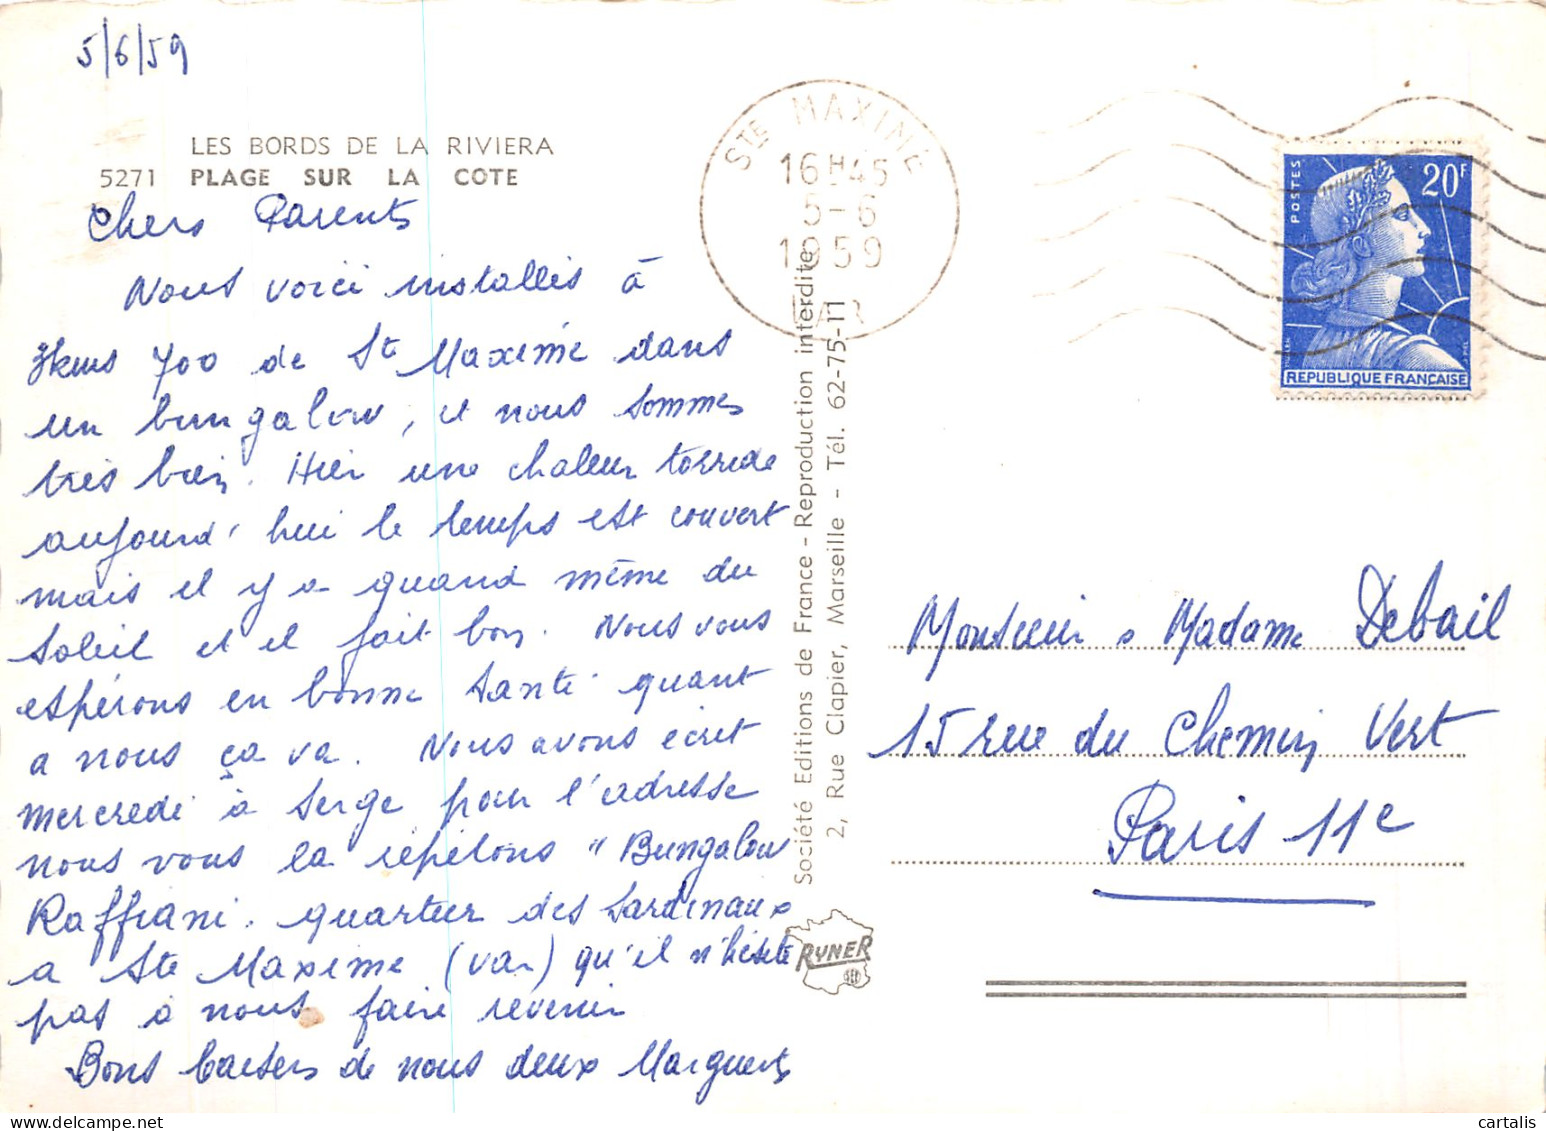 5/6/59
LES BORDS DE LA RIVIERA
5271 PLAGE SUR LA COTE
Chers Parents
Nous voici installés à
3kms 700 de Ste Maxime dans
un bungalow, et nous sommes
très bien. Hier une chaleur torride
aujourd'hui le temps est couvert
mais il y a quand même du
soleil et il fait bon. Nous vous
espérons en bonne santé quant
a nous ça va. Nous avons écrit
mercredi à Serge pour l'adresse
nous vous la répétons "Bungalow
Raffiani. quartier des Sardinaux
a Ste Maxime (var) qu'il n'hésite
pas à nous faire revenir
Bons baisers de nous deux
STE MAXIME
16H45
5-6
1959
VAR
Société Editions de France - Reproduction interdite
2, Rue Clapier, Marseille - Tél. 62-75-11
RYNER
POSTES
20F
REPUBLIQUE FRANÇAISE
Monsieur & Madame Debail
15 rue du Chemin Vert
Paris 11e
cartalis